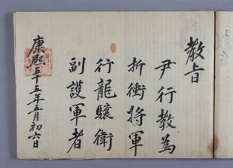 敎旨
尹行敎爲
折衝將軍
行龍驤衛
副護軍者
康熙五十五年五月初六日